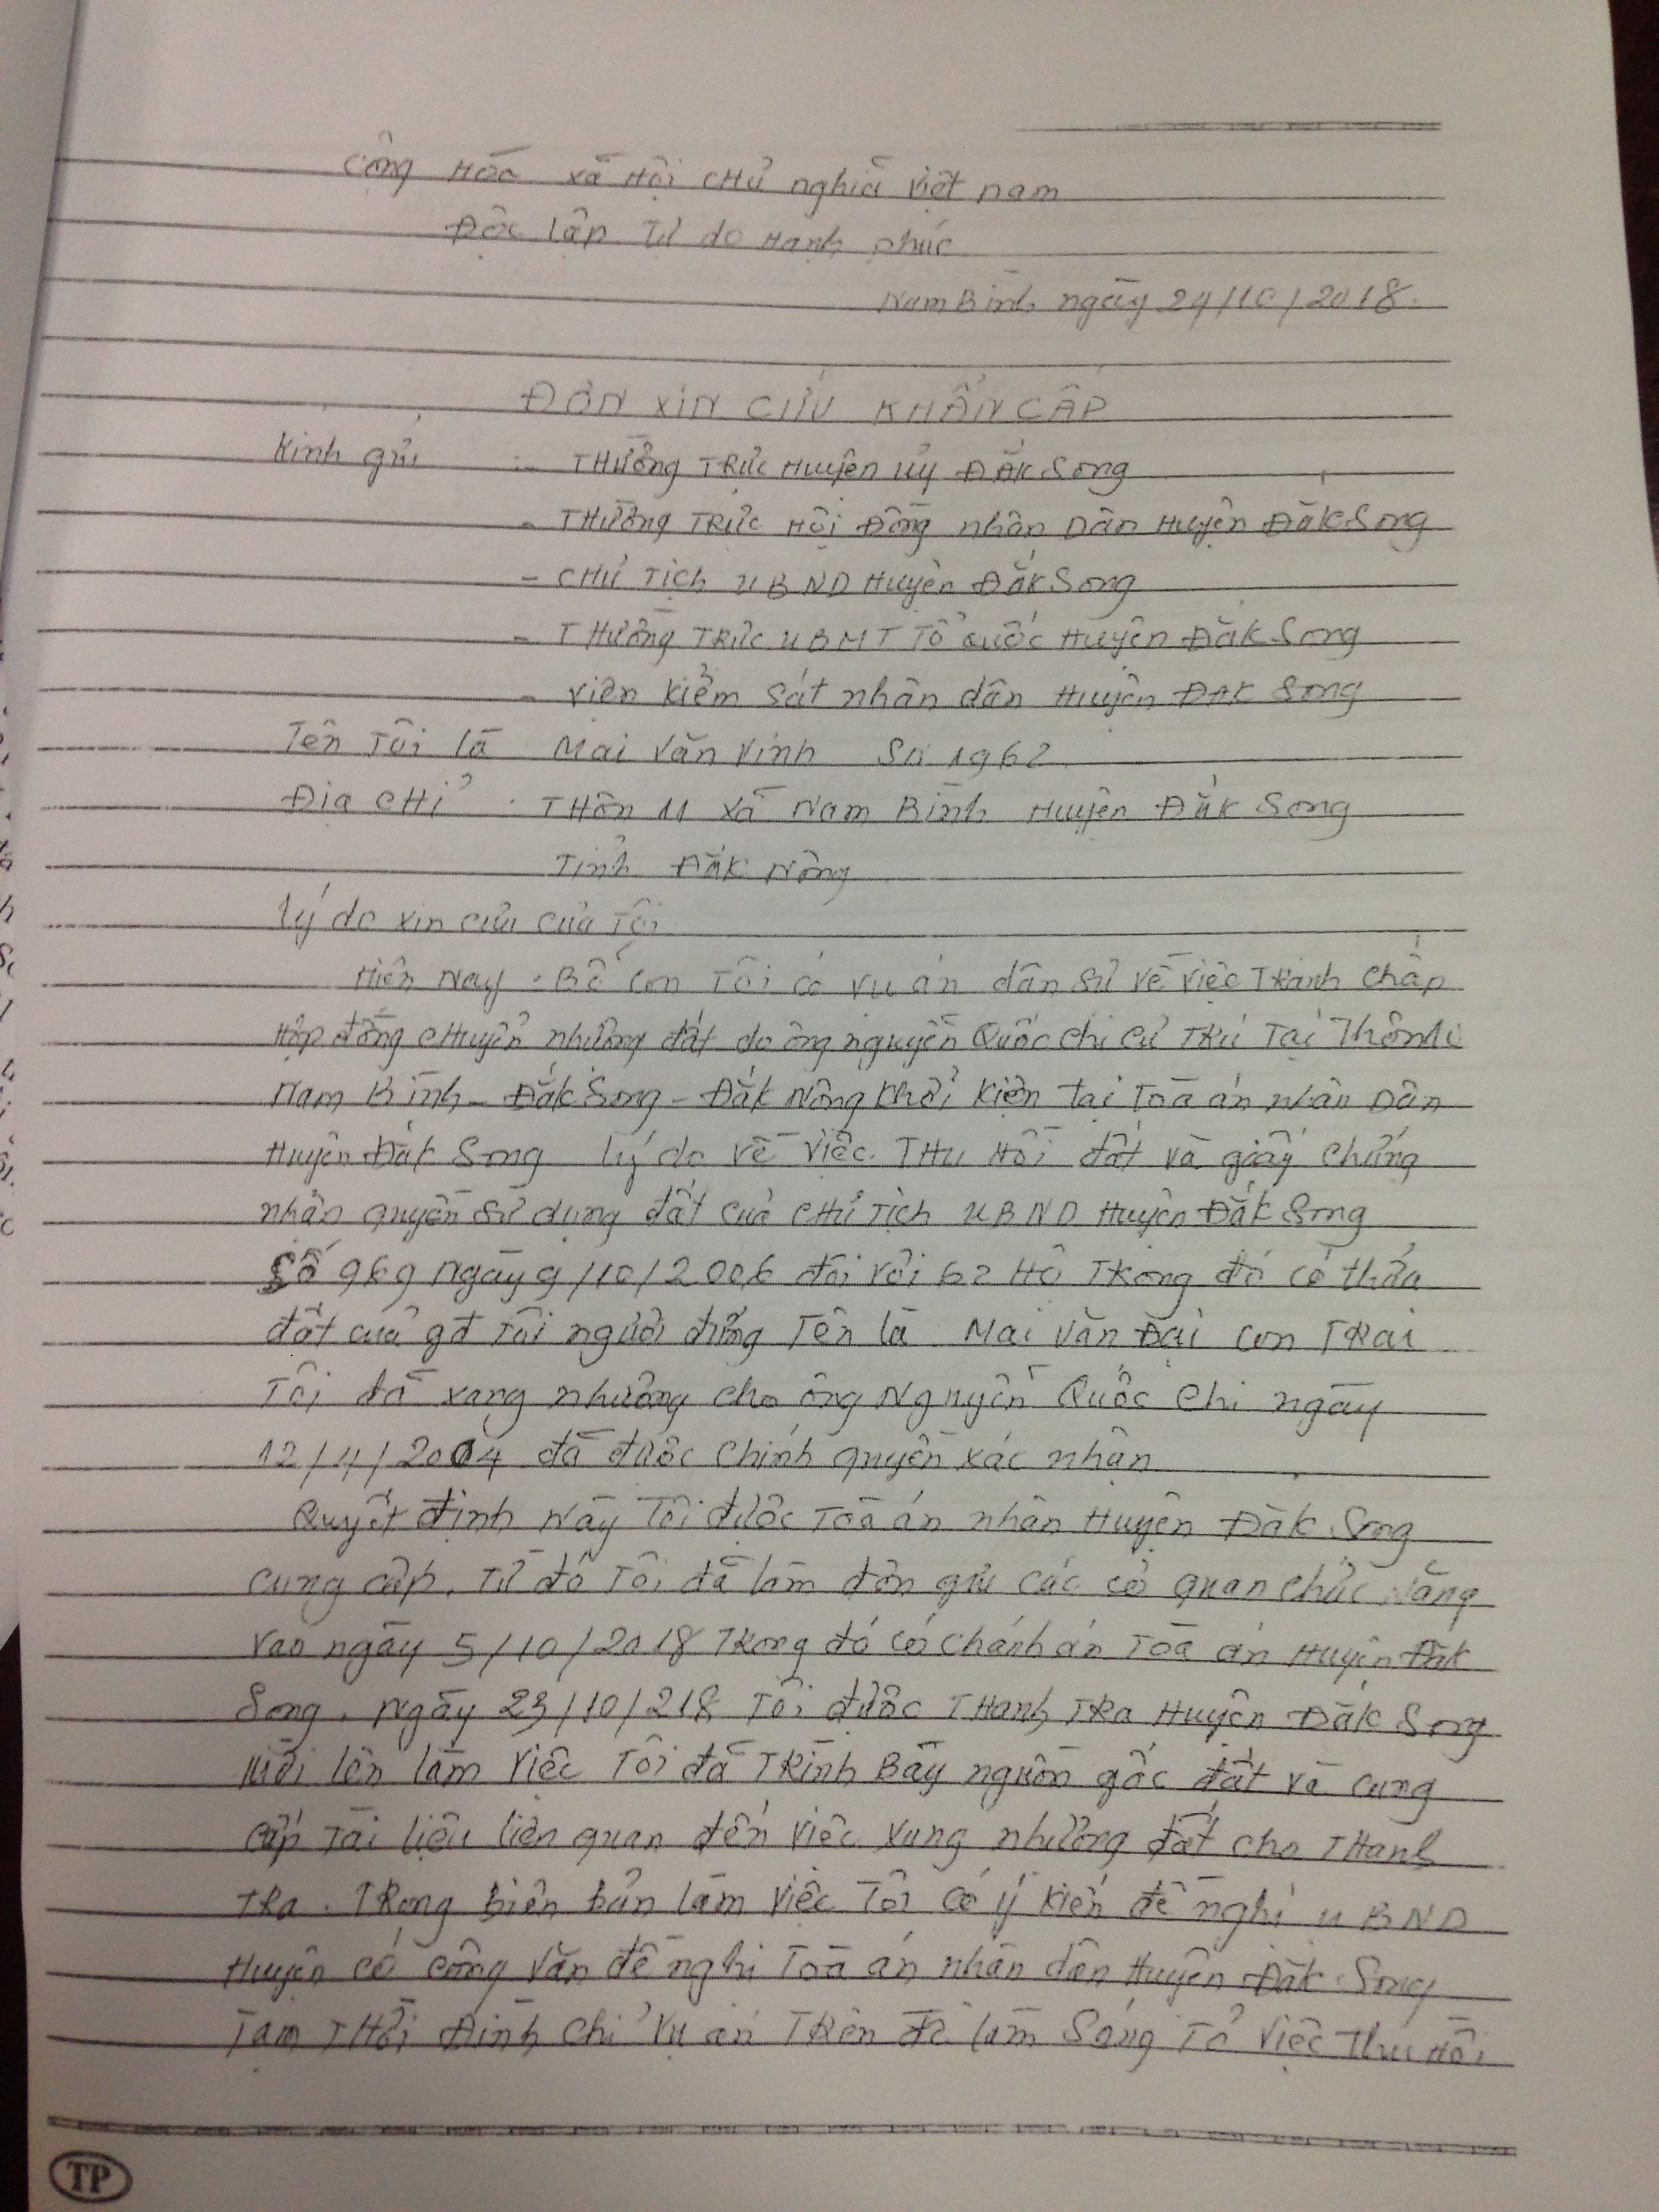 Cộng Hòa xã Hội CHủ nghĩa Việt nam
Độc lập Tự do Hạnh phúc
Nam Bình ngày 24/10/2018.
ĐƠN XIN CỨU KHẨN CẤP
Kính gửi :- THường TRực Huyện ủy ĐẮK Song
- THường TRực Hội Đồng nhân Dân Huyện Đắk Song
- CHủ Tịch UBND Huyện Đắk Song
- THường TRực UBMT Tổ Quốc Huyện Đắk Song
- Viện Kiểm Sát nhân dân Huyện ĐẮK Song
Tên Tôi là Mai Văn Vinh SN 1962
Địa CHỉ : THôn 11 xã Nam Bình Huyện Đắk Song
Tỉnh Đắk Nông
lý do xin cứu của Tôi
Hiện Nay . Bố con Tôi có vụ án dân sự về việc TRanh chấp
Hợp đồng CHuyển nhượng đất do ông nguyễn Quốc chi cư TRú Tại Thôn 10
Nam Bình - Đắk Song - Đắk Nông Khởi kiện Tại Tòa án Nhân Dân
Huyện Đắk Song lý do về việc. THu Hồi đất và giấy chứng
nhận quyền sử dụng đất của CHủ Tịch UBND Huyện Đắk Song
Số 969 Ngày 9/10/2006 đối với 62 Hộ TRong đó có thửa
đất của gđ Tôi người đứng Tên là Mai Văn Đại con TRai
Tôi đã xang nhượng cho ông Nguyễn Quốc Chi ngày
12/4/2004 đã được Chính quyền xác nhận
Quyết định Này Tôi được Tòa án nhân Huyện Đắk Song
cung cấp. Từ đó Tôi đã làm đơn gửi các cơ quan chức Năng
vào ngày 5/10/2018 TRong đó có Chánh án Tòa án Huyện Đắk
Song. Ngày 23/10/218 Tôi được THanh TRa Huyện Đắk Song
mời lên làm việc Tôi đã TRình Bầy nguồn gốc đất và cung
cấp Tài liệu liên quan đến việc xang nhượng đất cho THanh
TRa. TRong biên bản làm việc Tôi có ý kiến đề nghị UBND
Huyện có công văn đề nghị Tòa án nhân dân Huyện Đắk Song
Tạm THời Đình Chỉ Vụ án TRên để làm Sáng Tỏ việc Thu Hồi
TP